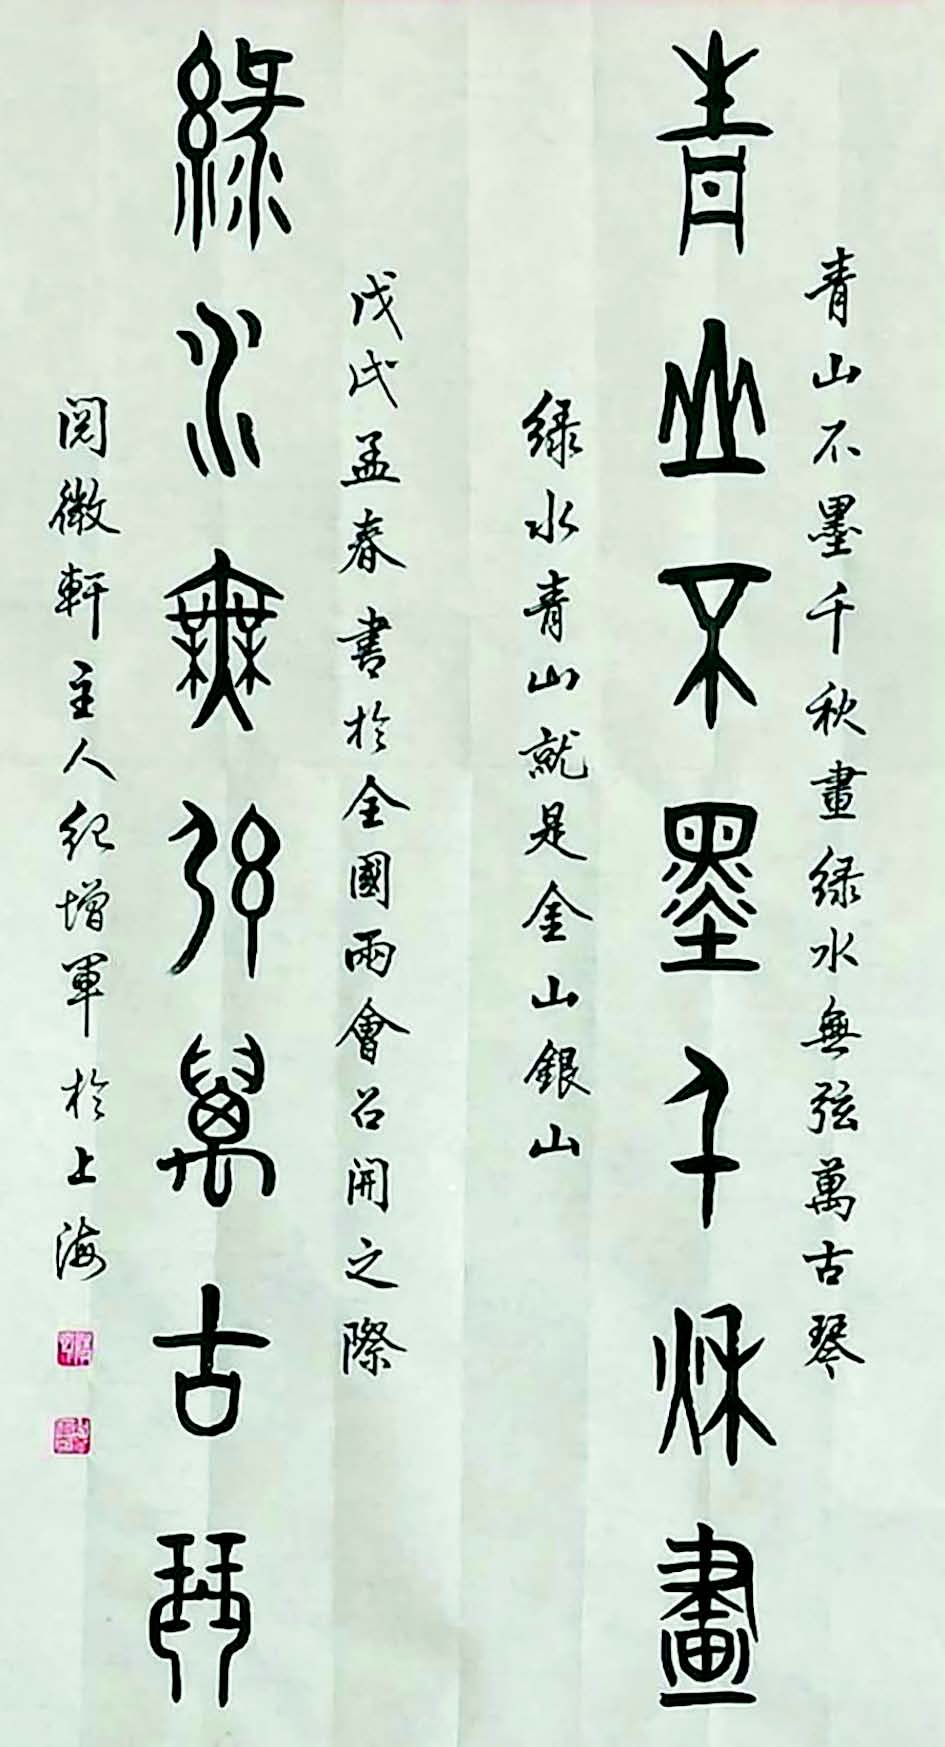 青山不墨千秋畫緑水無弦萬古琴
青山不墨千秋畫
緑水青山就是金山銀山
戊戌孟春書於全國兩會召開之際
緑水無弦萬古琴
閲微軒主人紀增軍於上海